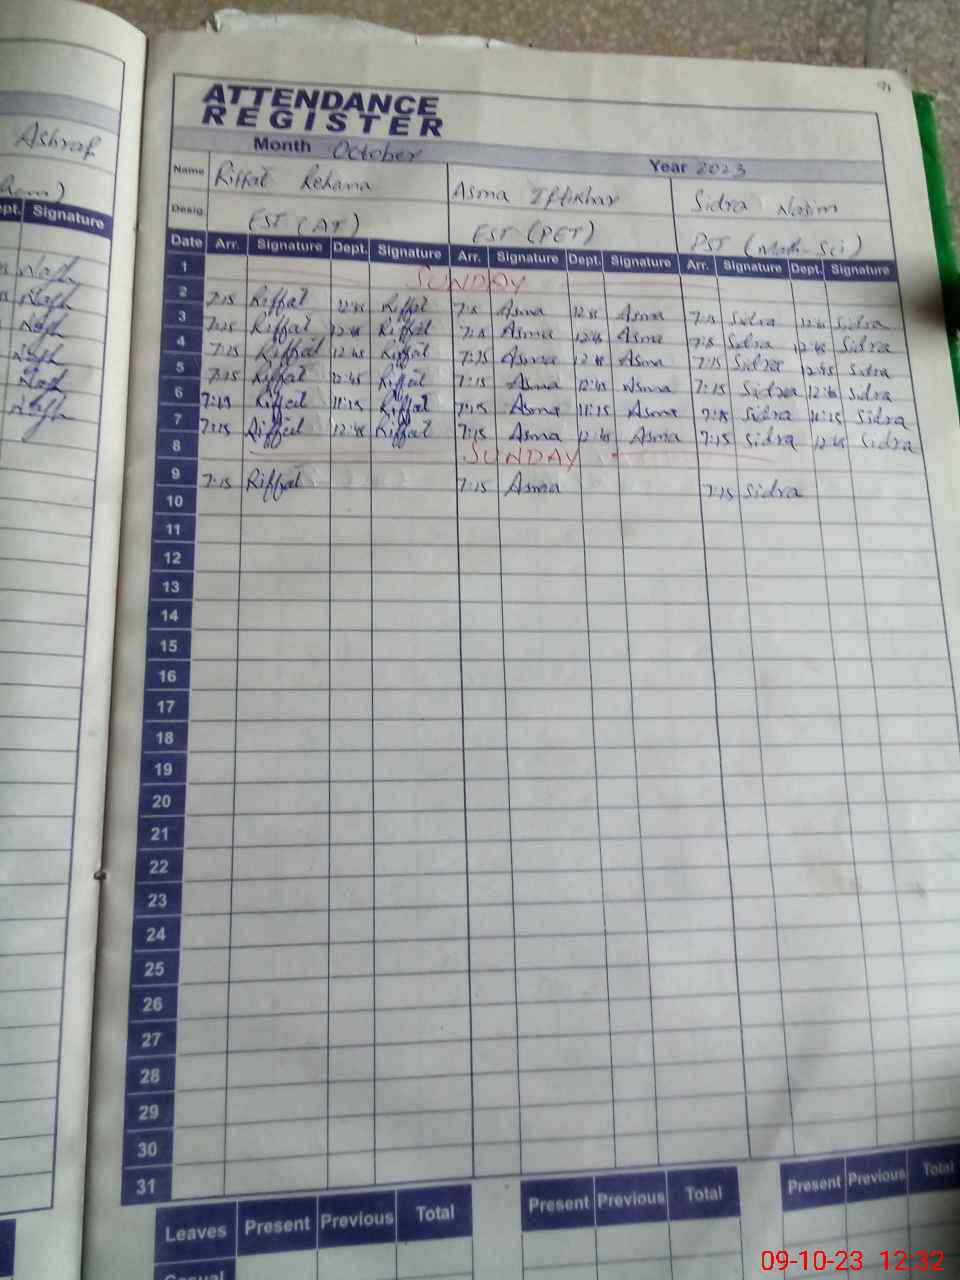 Ashraf
Signature
ATTENDANCE
REGISTER
Month October Year 2023
Name Riffat Rehana Asma Iftikhar Sidra Nasim
Desig. EST (AT) EST (PET) PST (Math-Sci)
Date Arr. Signature Dept. Signature Arr. Signature Dept. Signature Arr. Signature Dept. Signature
1 SUNDAY
2 7:15 Riffat 12:45 Riffat 7:15 Asma 12:45 Asma 7:15 Sidra 12:45 Sidra
3 7:15 Riffat 12:45 Riffat 7:15 Asma 12:45 Asma 7:15 Sidra 12:45 Sidra
4 7:15 Riffat 12:45 Riffat 7:15 Asma 12:45 Asma 7:15 Sidra 12:45 Sidra
5 7:15 Riffat 12:45 Riffat 7:15 Asma 12:45 Asma 7:15 Sidra 12:45 Sidra
6 7:15 Riffat 11:15 Riffat 7:15 Asma 11:15 Asma 7:15 Sidra 11:15 Sidra
7 7:15 Riffat 12:45 Riffat 7:15 Asma 12:45 Asma 7:15 Sidra 12:45 Sidra
8 SUNDAY
9 7:15 Riffat 7:15 Asma 7:15 Sidra
10
11
12
13
14
15
16
17
18
19
20
21
22
23
24
25
26
27
28
29
30
31
Leaves Present Previous Total Present Previous Total Present Previous Total
Casual
09-10-23 12:32